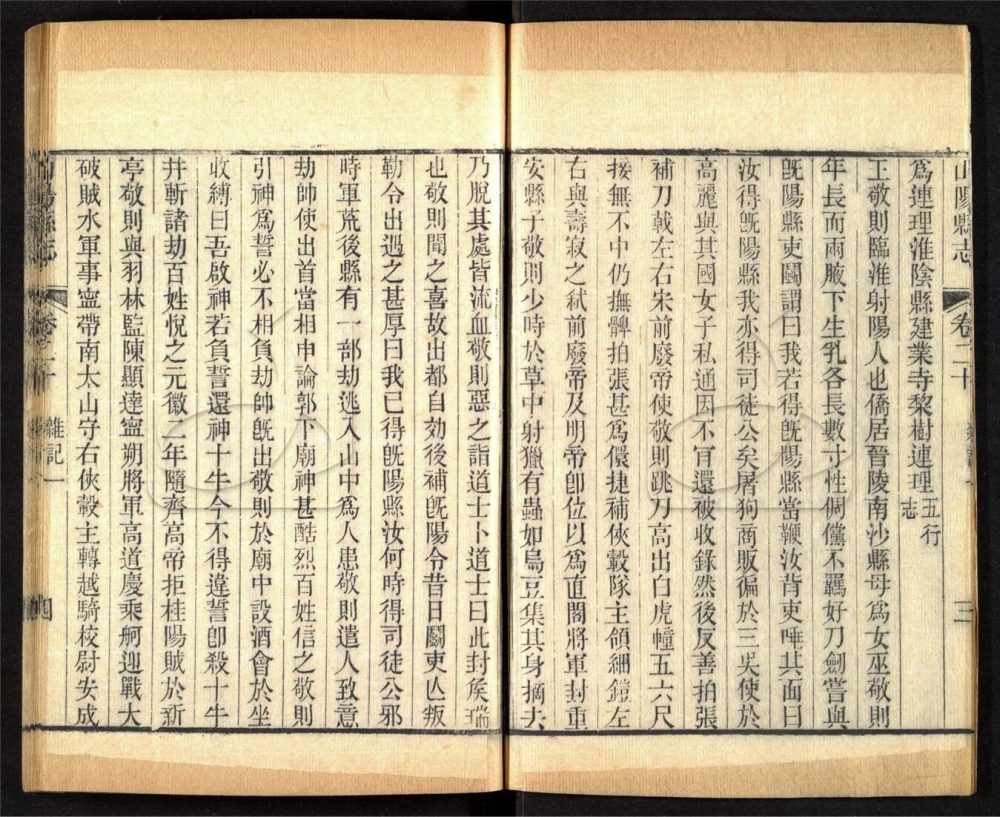 山陽縣志 卷二十 雜記一 三
爲連理淮陰縣建業寺棃樹連理五行志
王敬則臨淮射陽人也僑居晉陵南沙縣母爲女巫敬則
年長而兩腋下生乳各長數寸性倜儻不羈好刀劍嘗與
旣陽縣吏鬭謂曰我若得旣陽縣當鞭汝背吏唾其面曰
汝得旣陽縣我亦得司徒公矣屠狗商販徧於三吳使於
高麗與其國女子私通因不肎還被收錄然後反善拍張
補刀戟左右宋前廢帝使敬則跳刀高出白虎幢五六尺
接無不中仍撫髀拍張甚爲儇捷補俠轂隊主領細鎧左
右與壽寂之弑前廢帝及明帝卽位以爲直閣將軍封重
安縣子敬則少時於草中射獵有蟲如烏豆集其身摘去
乃脫其處皆流血敬則惡之詣道士卜道士曰此封矦瑞
也敬則聞之喜故出都自効後補旣陽令昔日鬭吏亾叛
勒令出遇之甚厚曰我已得旣陽縣汝何時得司徒公邪
時軍荒後縣有一部劫逃入山中爲人患敬則遣人致意
劫帥使出首當相申論郭下廟神甚酷烈百姓信之敬則
引神爲誓必不相負劫帥旣出敬則於廟中設酒會於坐
收縛曰吾啟神若負誓還神十牛今不得違誓卽殺十牛
幷斬諸劫百姓悅之元徽二年隨齊高帝拒桂陽賊於新
亭敬則與羽林監陳顯達寧朔將軍高道慶乘舸迎戰大
破賊水軍事寧帶南太山守右俠轂主轉越騎校尉安成
山陽縣志 卷二十 雜記一 四